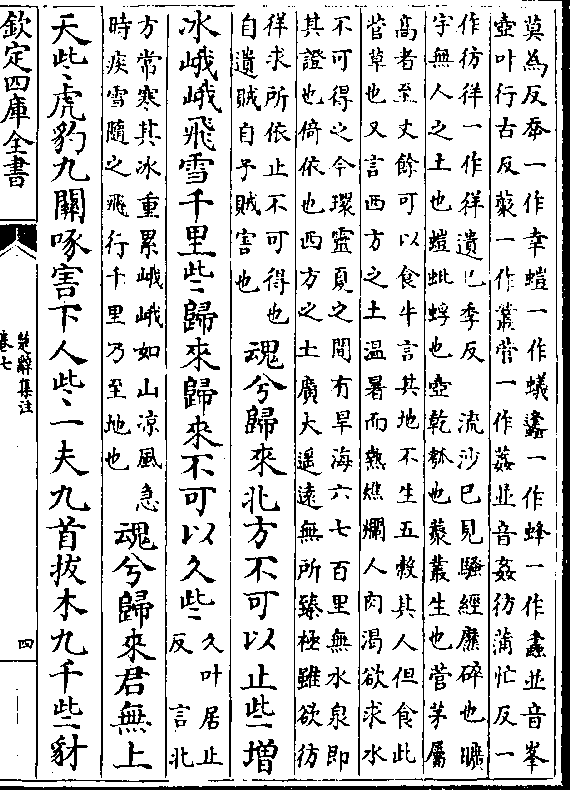 莫為反𡘋一作幸螘一作蟻蠭一作蜂一作䗬並音峯
壺叶行古反藂一作叢菅一作葌並音姦彷蒲忙反一
作彷徉一作祥遺已季反 流沙已見騷經靡碎也曠
宇無人之土也螘蚍蜉也壺乾瓠也藂叢生也菅茅屬
高者至丈餘可以食牛言其地不生五穀其人但食此
菅草也又言西方之土温暑而熱燋爛人肉渴欲求水
不可得之今環靈夏之間有旱海六七百里無水泉即
其證也倚依也西方之土廣大遥遠無所臻極雖欲彷
徉求所依止不可得也
自遺賊自予賊害也
魂兮歸來北方不可以止些增
冰峨峨飛雪千里些歸來歸來不可以久些
久叶居止
反 言北
方常寒其冰重累峨峨如山凉風急
時疾雪隨之飛行千里乃至地也
魂兮歸來君無上
天些虎豹九關啄害下人些一夫九首拔木九千些豺
欽定四庫全書
楚辭集注
卷七
四